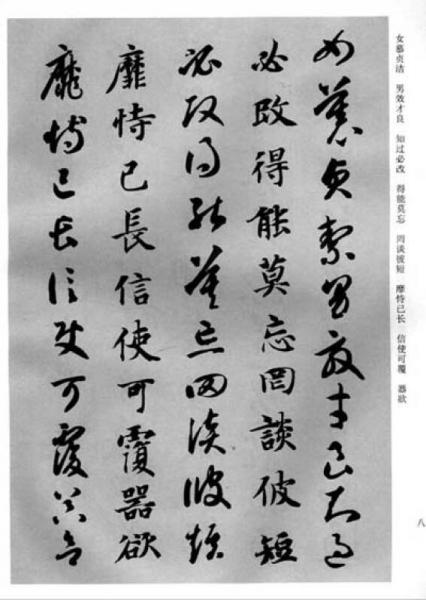 女慕贞洁 男效才良 知过必改 得能莫忘 罔谈彼短 靡恃已长 信使可覆 器欲
女慕貞絜男效才良知過
必改得能莫忘罔談彼短
必改得能莫忘罔談彼短
靡恃已長信使可覆器欲
靡恃已長信使可覆器欲
八